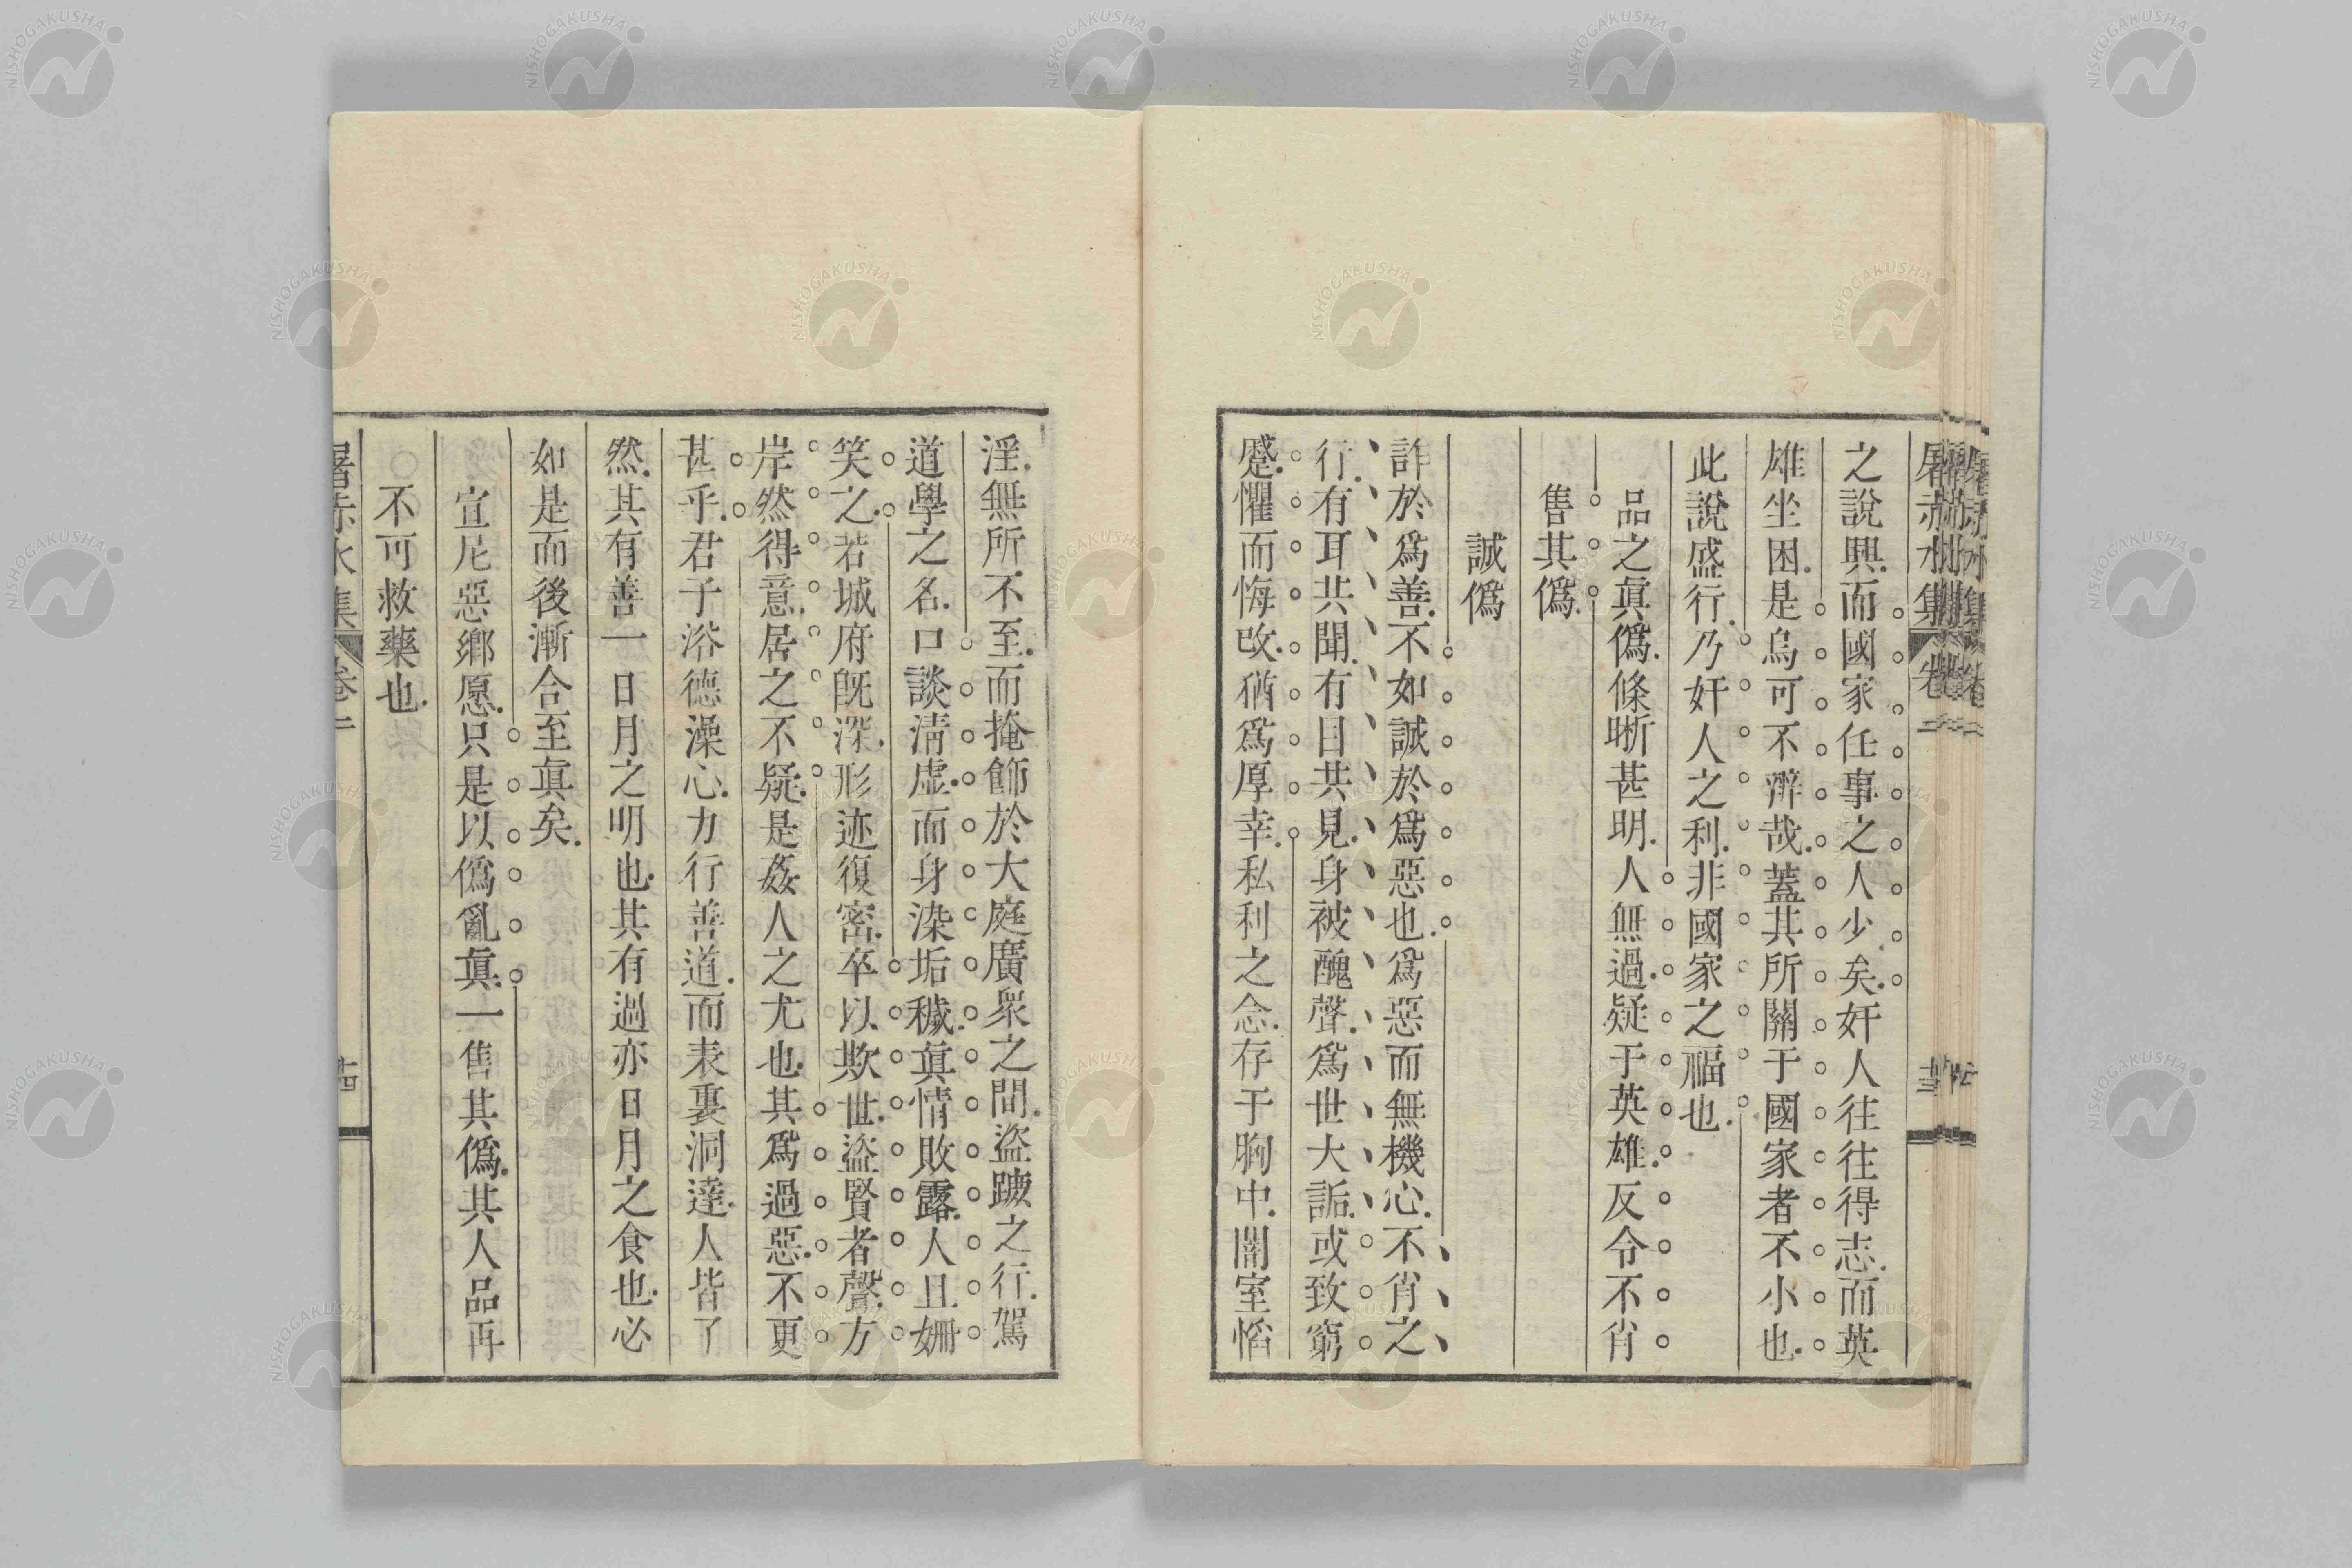 屠赤水集 卷二
之說興而國家任事之人少矣奸人往往得志而英
雄坐困是烏可不辯哉蓋其所關于國家者不小也
此說盛行乃奸人之利非國家之福也
品之眞僞條晰甚明人無過疑于英雄反令不肖
售其僞
誠僞
詐於爲善不如誠於爲惡也爲惡而無機心不肖之
行有耳共聞有目共見身被醜聲爲世大詬或致窮
蹙懼而悔改猶爲厚幸私利之念存于胸中闇室慆
淫無所不至而掩飾於大庭廣衆之間盜蹠之行駕
道學之名口談淸虛而身染垢穢眞情敗露人且姍
笑之若城府旣深形迹復密卒以欺世盜賢者聲方
岸然得意居之不疑是姦人之尤也其爲過惡不更
甚乎君子浴德澡心力行善道而表裏洞達人皆了
然其有善一日月之明也其有過亦日月之食也必
如是而後漸合至眞矣
宣尼惡鄉愿只是以僞亂眞一售其僞其人品再
不可救藥也
屠赤水集 卷二 十四
NISHOGAKUSHA